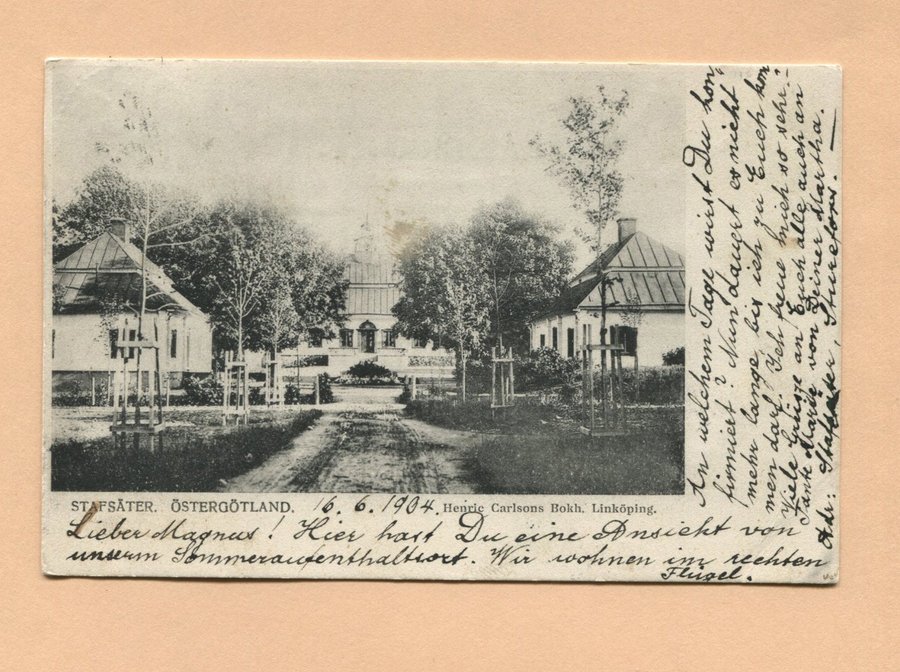 STAFSÄTER. ÖSTERGÖTLAND. 16.6.1904. Henric Carlsons Bokh. Linköping.
Lieber Magnus! Hier hast Du eine Ansicht von
unserm Sommeraufenthaltsort. Wir wohnen im rechten
Flügel.
An welchem Tage wirst Du kon
firmiert? Nun dauert es nicht
mehr lange bis ich zu Euch kom
men darf. Ich freue mich so sehr.
Viele Grüsse an Euch alle auch an
Tante Marie von Deiner Martha.
Adr: Stafsäter, Sturefors.